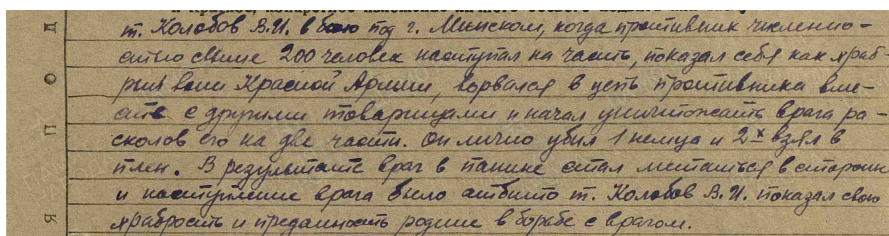 т. Колобов В.И. в бою под г. Минском, когда противник численно-
стью свыше 200 человек наступал на часть, показал себя как храб-
рый воин Красной Армии, ворвался в цепь противника вме-
сте с другими товарищами и начал уничтожать врага ра-
сколов его на две части. Он лично убил 1 немца и 2х взял в
плен. В результате враг в панике стал метаться в стороны
и наступление врага было отбито т. Колобов В.И. показал свою
храбрость и преданность родине в борьбе с врагом.
Я П О Д